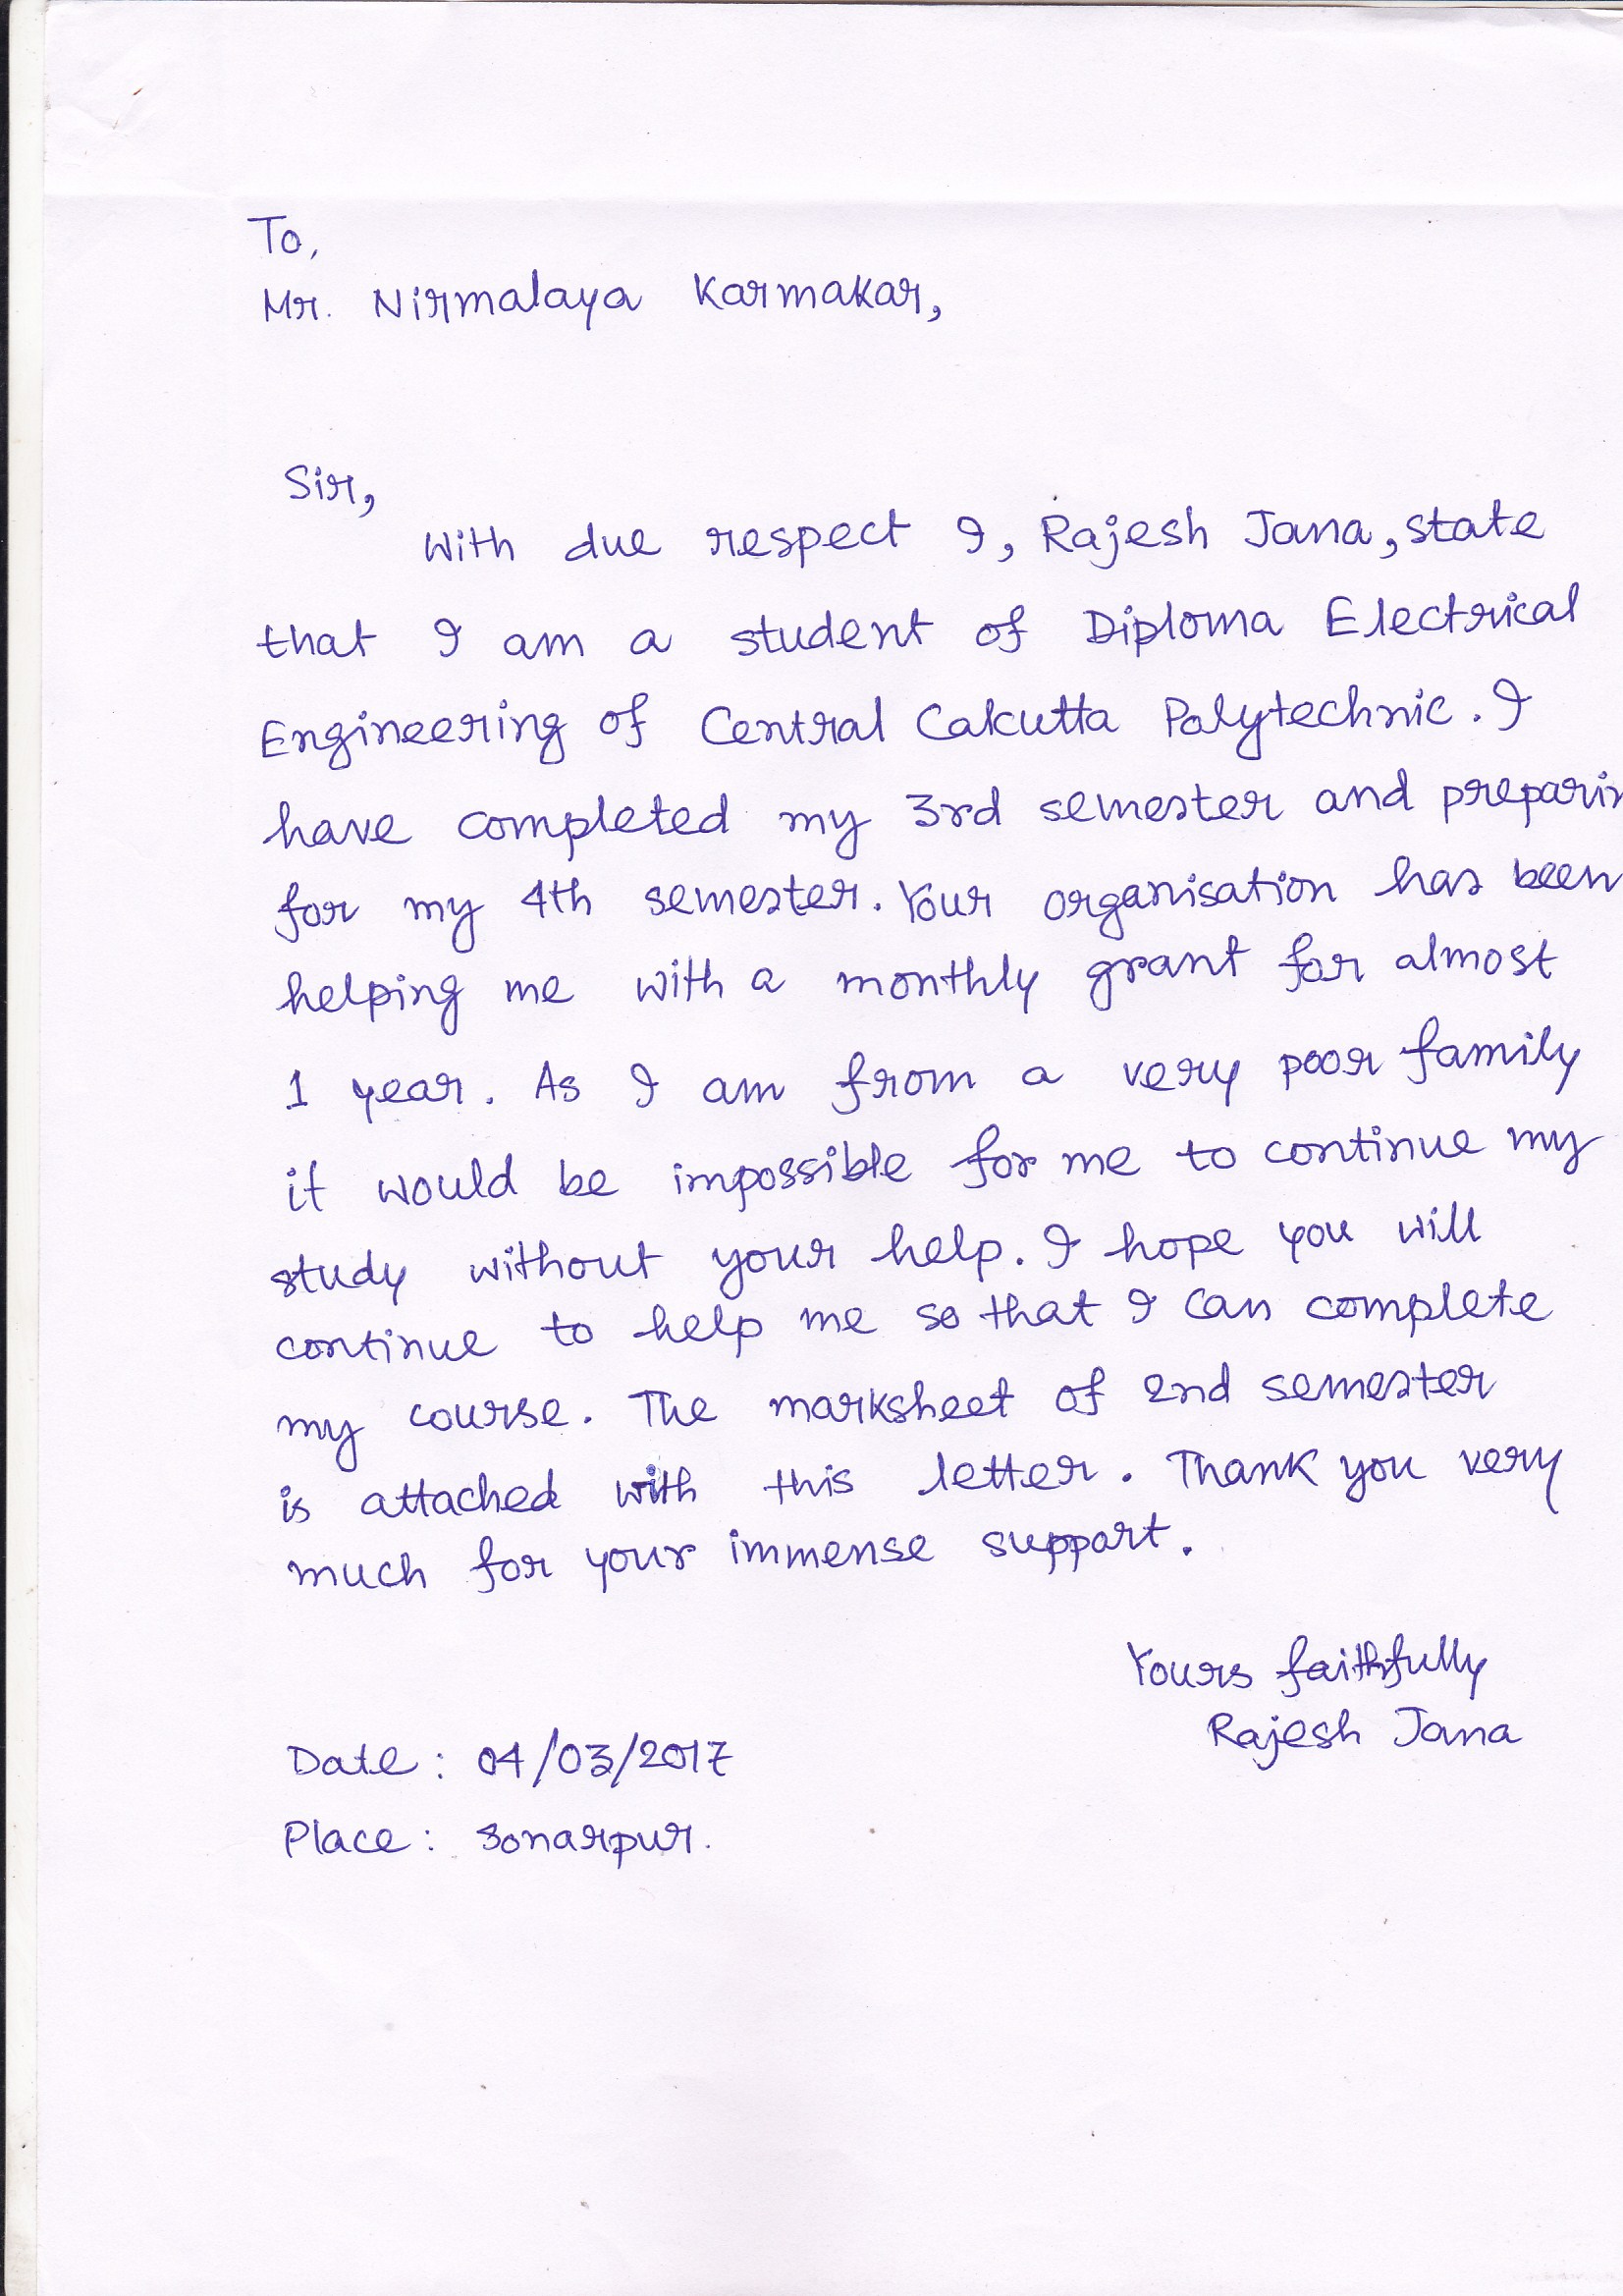 To,
Mr. Nirmalaya Karmakar,
Sir,
With due respect I, Rajesh Jana, state
that I am a student of Diploma Electrical
Engineering of Central Calcutta Polytechnic. I
have completed my 3rd semester and preparin
for my 4th semester. Your organisation has been
helping me with a monthly grant for almost
1 year. As I am from a very poor family
it would be impossible for me to continue my
study without your help. I hope you will
continue to help me so that I can complete
my course. The marksheet of 2nd semester
is attached with this letter. Thank you very
much for your immense support.
Yours faithfully
Rajesh Jana
Date : 04/03/2017
Place : Sonarpur.